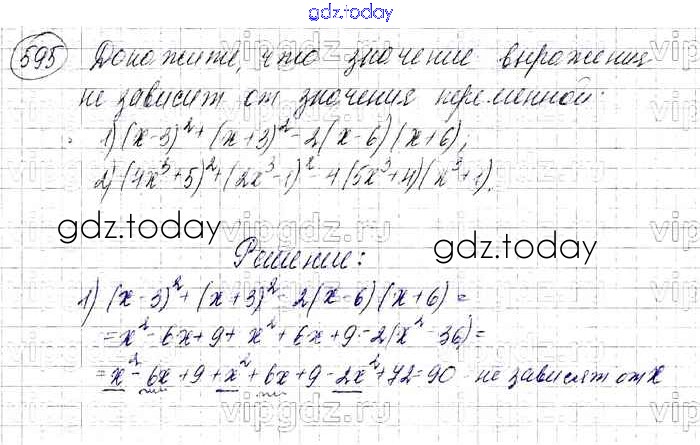 gdz.today
595 Докажите, что значение выражения
не зависит от значения переменной:
1) (x-3)²+(x+3)²-2(x-6)(x+6);
2) (4x³+5)²+(2x³-1)²-4(5x³+4)(x³+1).
gdz.today
gdz.today
Решение:
1) (x-3)²+(x+3)²-2(x-6)(x+6)=
=x²-6x+9+x²+6x+9-2(x²-36)=
=x²-6x+9+x²+6x+9-2x²+72=90 - не зависят от x